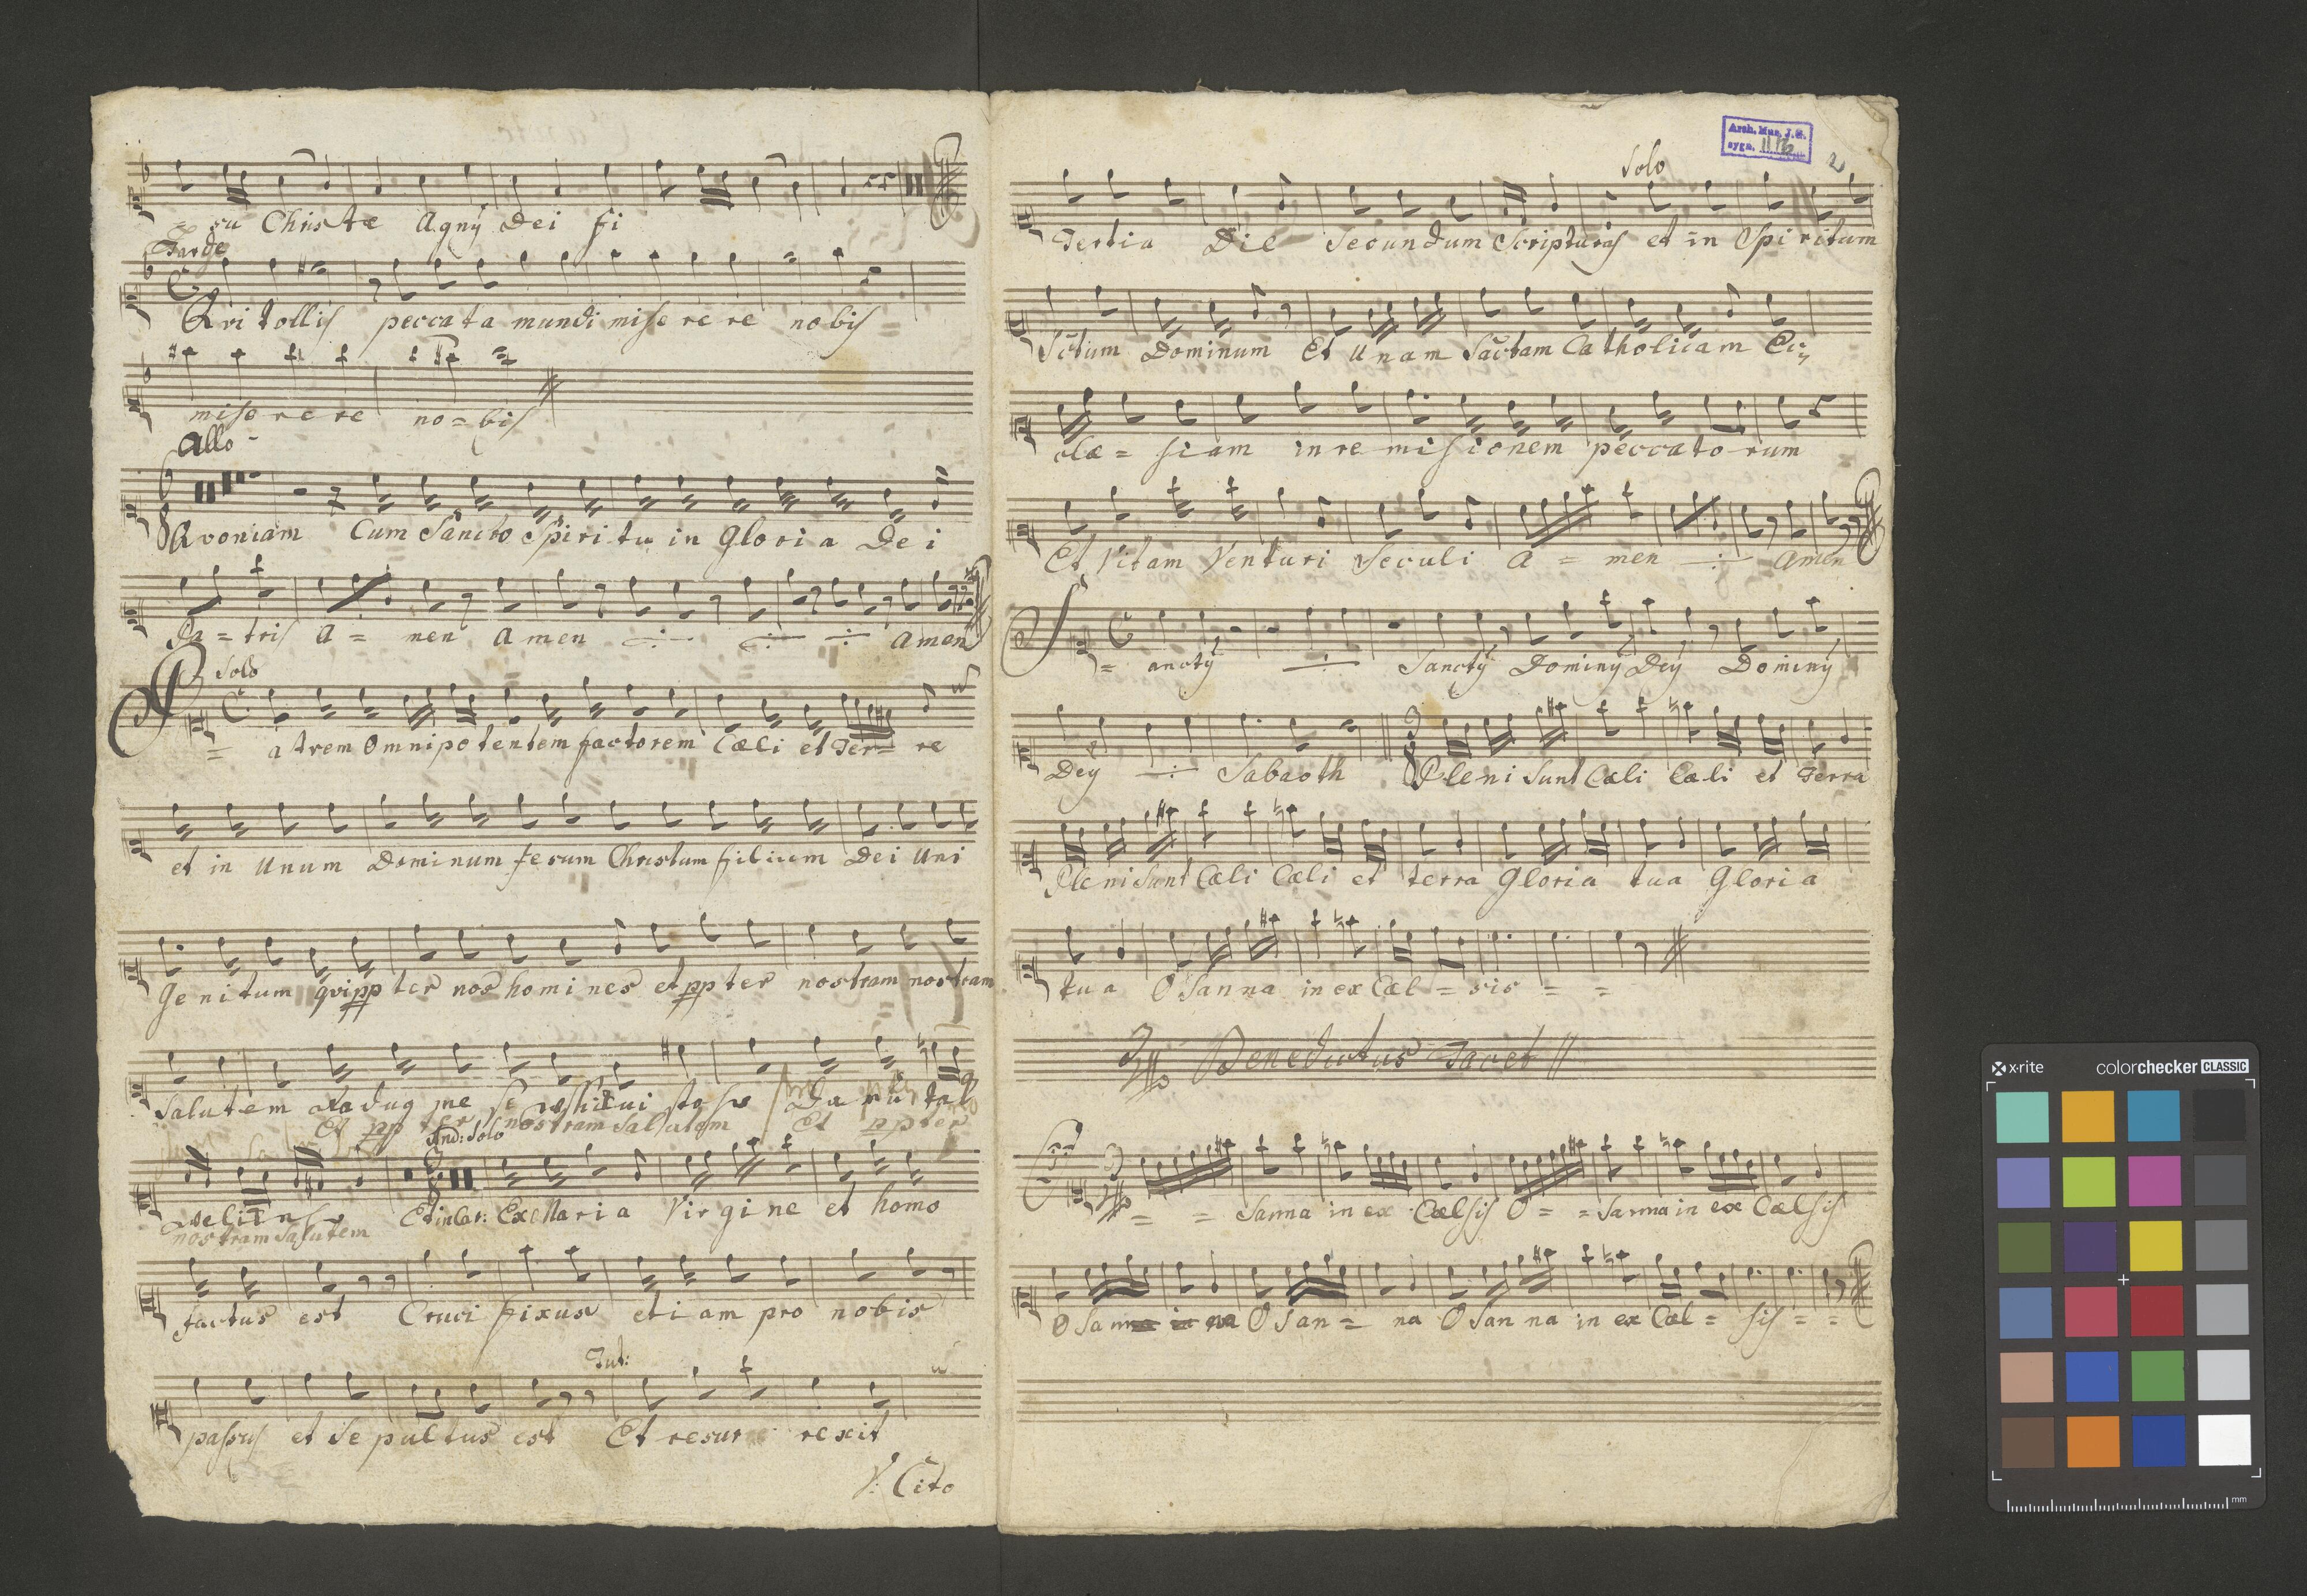 = su Christe Agnÿ Dei fi
Large
Qvi tollis peccata mundi miserere nobis =
miserere no = bis
Allo
Qvoniam Cum Sancto Spiritu in Gloria Dei
Pa = tris A = men Amen ÷ ÷ ÷ Amen
Solo
P = atrem Omnipotentem factorem Cæli et Ter = re
et in Unum Dominum Jesum Christum filium Dei Uni
Genitum qvi ppter nos homines et ppter nostram nostram
Salutem
Et ppter nostram Salutem Et ppter
And: Solo
nostram Salutem
Et in Car: Ex Maria Virgine et homo
factus est Cruci fixus etiam pro nobis
Tut:
passus et Sepultus est Et resur rexit
V: Cito
Arch. Mus. J. G.
sygn. II.16
2
Solo
Tertia Die Secundum Scripturas et in Spiritum
Sctum Dominum Et Unam Sactam Catholicam Ec
clæ = siam in remissionem peccatorum
Et Vitam Venturi Seculi A = men ÷ Amen
S = anctÿ ÷ Sanctÿ Dominÿ Deÿ Dominÿ
Deÿ ÷ Sabaoth Pleni Sunt Cæli Cæli et Terra
Pleni Sunt Cæli Cæli et terra Gloria tua Gloria
tua OSanna in ex Cæl = sis = =
Benedictus Tacet
= = Sanna in ex Cælsis O = = Sanna in ex Cælsis
OSanna OSan = na OSanna in ex Cæl = sis = =
x·rite
colorchecker CLASSIC
mm